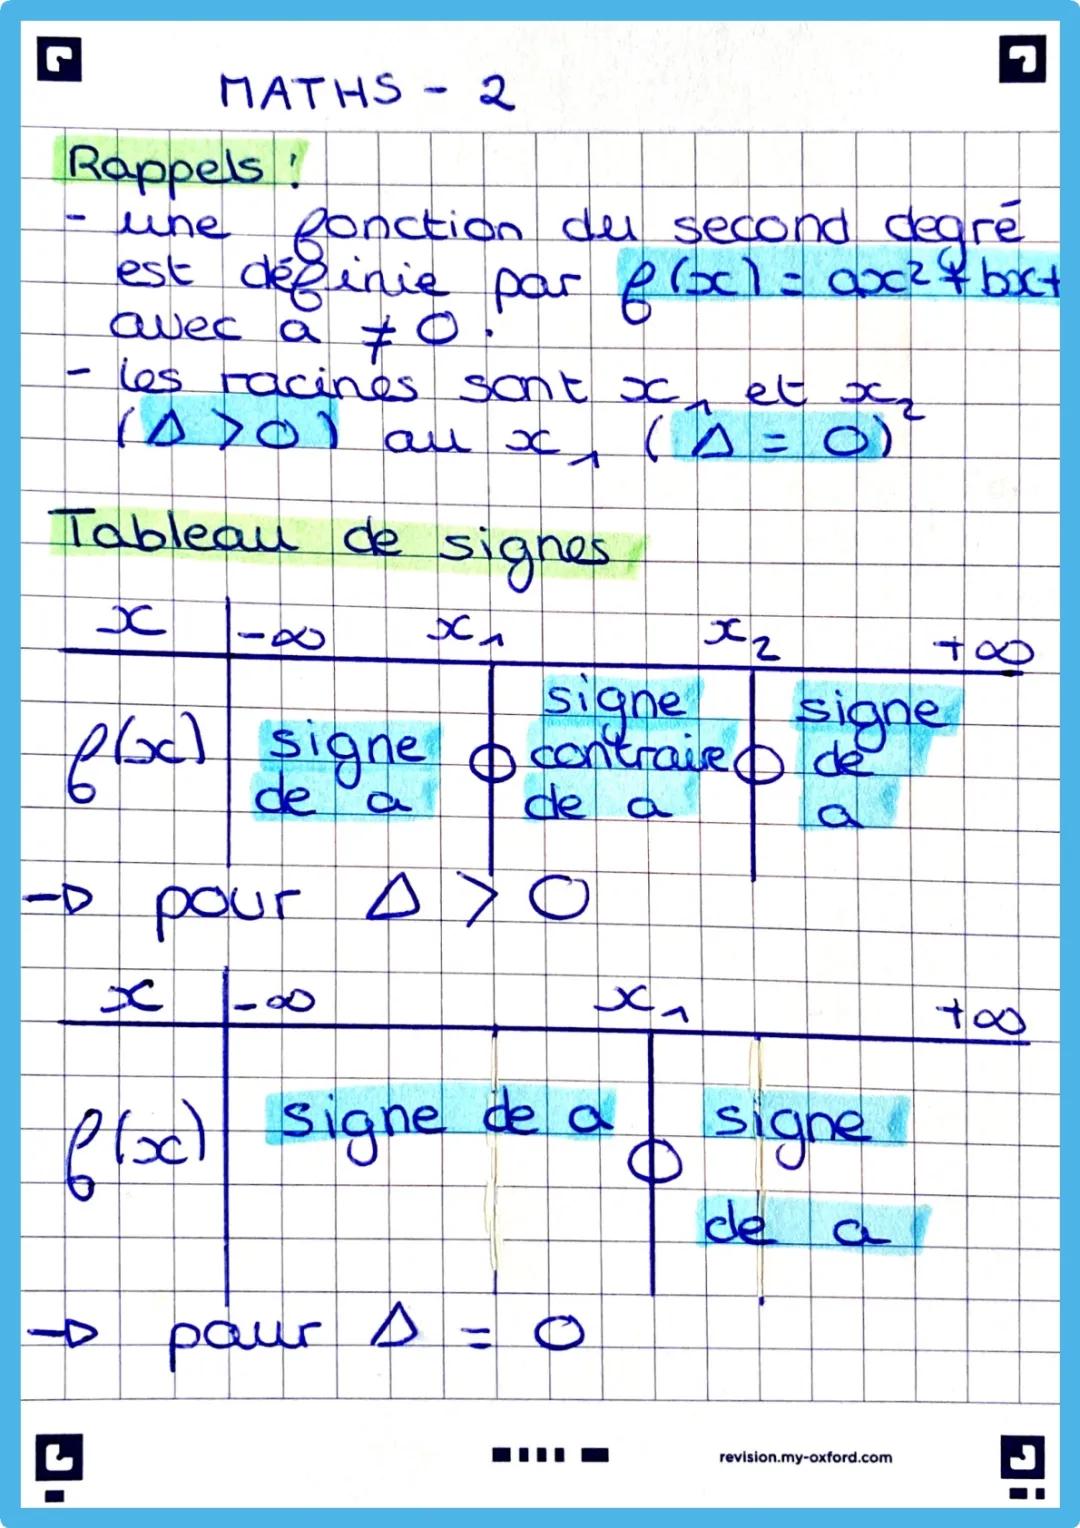 MATHS - 2
Rappels :
- une fonction du second degré
est définie par f(x) = ax² + bx +
avec a ≠ 0.
- les racines sont x₁ et x₂
(Δ > 0) ou x₁ (Δ = 0)
Tableau de signes
x -∞ x₁ x₂ +∞
f(x) signe de a 0 signe contraire de a 0 signe de a
→ pour Δ > 0
x -∞ x₁ +∞
f(x) signe de a 0 signe de a
→ pour Δ = 0
revision.my-oxford.com